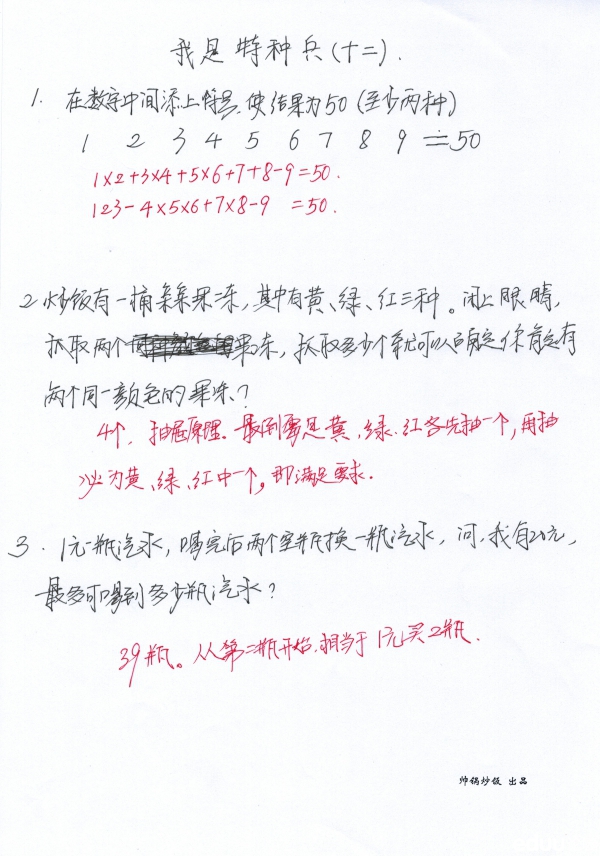 我是特种兵(十二).
1. 在数字中间添上符号,使结果为50(至少两种)
1 2 3 4 5 6 7 8 9 = 50
1×2+3×4+5×6+7+8-9=50.
123-4×5×6+7×8-9 =50.
2 炒饭有一桶果冻,其中有黄、绿、红三种。闭上眼睛,
抓取两个果冻,抓取多少个就可以确定你肯定有
两个同一颜色的果冻?
4个,抽屉原理.最倒霉是黄、绿、红各先抽一个,再抽
必为黄、绿、红中一个。即满足要求.
3. 1元一瓶汽水,喝完后两个空瓶换一瓶汽水,问:我有20元,
最多可喝到多少瓶汽水?
39瓶。从第二瓶开始,相当于1元买2瓶.
帅锅炒饭 出品